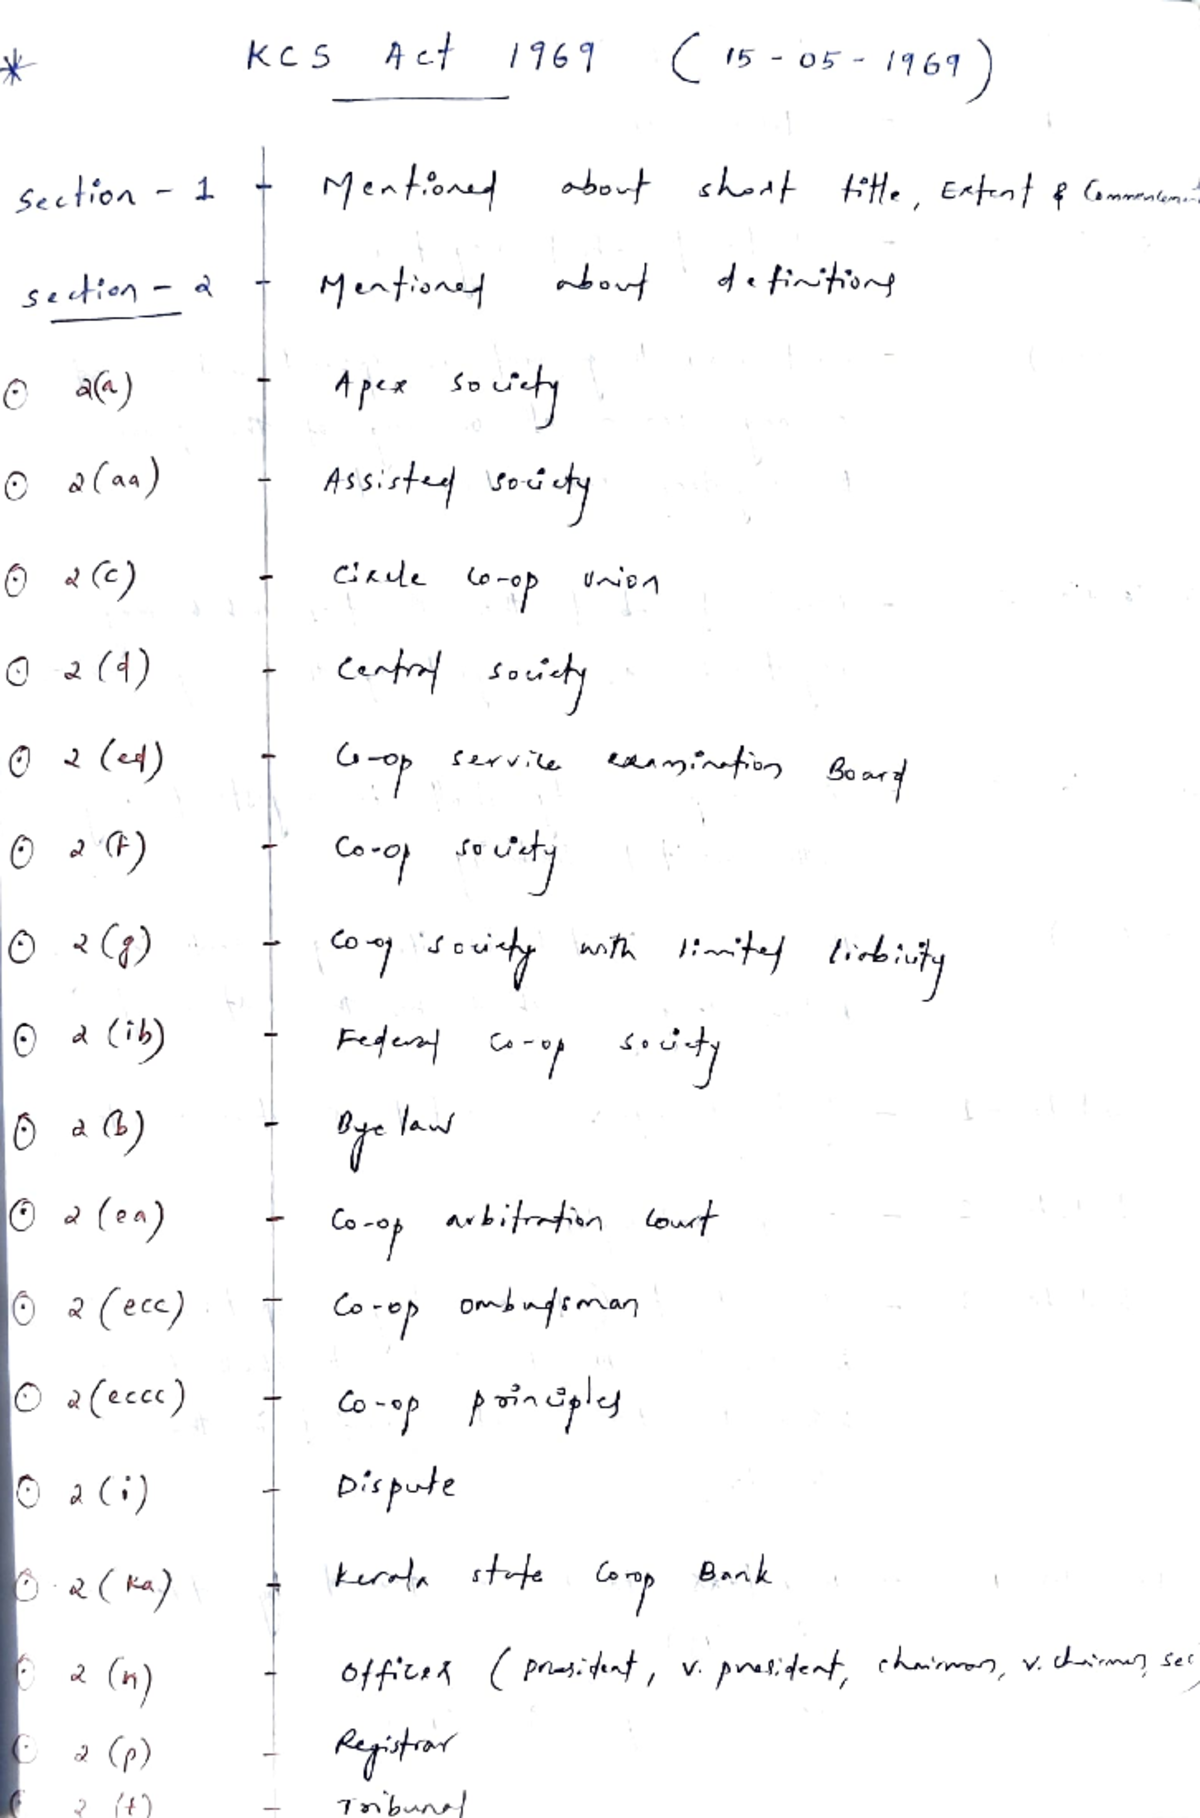 * KCS Act 1969 (15-05-1969)
Section - 1 - Mentioned about short title, Extent & Commencement
Section - 2 - Mentioned about definitions
2(a) - Apex society
2(aa) - Assisted society
2(c) - Circle co-op union
2(d) - Central society
2(ed) - Co-op service examination Board
2(f) - Co-op society
2(g) - Co-op society with limited liability
2(ib) - Federal co-op society
2(b) - Bye law
2(ea) - Co-op arbitration court
2(ecc) - Co-op ombudsman
2(eccc) - Co-op principles
2(i) - Dispute
2(ka) - Kerala state Co-op Bank
2(n) - Officer (president, v. president, chairman, v. chairman, sec)
2(p) - Registrar
2(t) - Tribunal